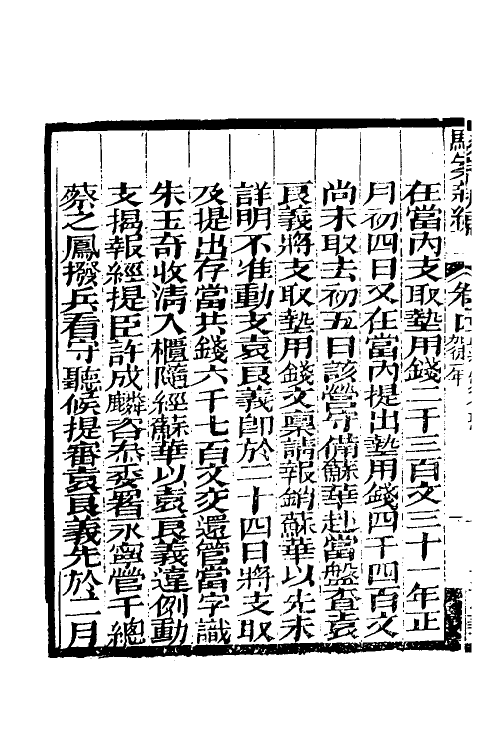 駁案新編
卷四
在當內支取墊用錢二千三百文三十一年正
月初四日又在當內提出墊用錢四千四百文
尚未取去初五日該營守備蘇華赴當盤查袁
良義將支取墊用錢文稟請報銷蘇華以先未
詳明不准動支袁良義卽於二十四日將支取
及提出存當共錢六千七百文交還管當字識
朱玉奇收清入櫃隨經蘇華以袁良義違例動
支揭報經提臣許成麟咨叅委署永寧營千總
蔡之鳳撥兵看守聽候提審袁良義先於二月